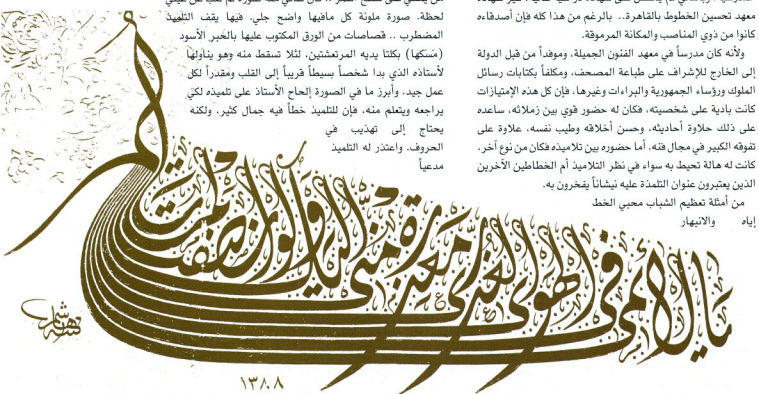 معهد تحسين الخطوط بالقاهرة.. بالرغم من هذا كله فإن أصدقاءه
كانوا من ذوي المناصب والمكانة المرموقة.
ولأنه كان مدرساً في معهد الفنون الجميلة، وموفداً من قبل الدولة
إلى الخارج للإشراف على طباعة المصحف، ومكلفاً بكتابات رسائل
الملوك ورؤساء الجمهورية والبراءات وغيرها، فإن كل هذه الإمتيازات
كانت بادية على شخصيته، فكان له حضور قوي بين زملائه، ساعده
على ذلك حلاوة أحاديثه، وحسن أخلاقه وطيب نفسه، علاوة على
تفوقه الكبير في مجال فنه. أما حضوره بين تلاميذه فكان من نوع آخر،
كانت له هالة تحيط به سواء في نظر التلاميذ أم الخطاطين الآخرين
الذين يعتبرون عنوان التلمذة عليه نيشاناً يفخرون به.
من أمثلة تعظيم الشباب محبي الخط
إياه والانبهار
لحظة. صورة ملونة كل مافيها واضح جلي. فيها يقف التلميذ
المضطرب .. قصاصات من الورق المكتوب عليها بالحبر الأسود
(مَسَكها) بكلتا يديه المرتعشتين، لئلا تسقط منه وهو يناولها
لأستاذه الذي بدا شخصاً بسيطاً قريباً إلى القلب ومقدراً لكل
عمل جيد. وأبرز ما في الصورة إلحاح الأستاذ على تلميذه لكي
يراجعه ويتعلم منه، فإن للتلميذ خطاً فيه جمال كثير، ولكنه
يحتاج إلى تهذيب في
الحروف. واعتذر له التلميذ
مدعياً
يا لائمي في الهوى العذري معذرة مني إليك ولو أنصفت لم تلم
هاشم
١٣٨٨